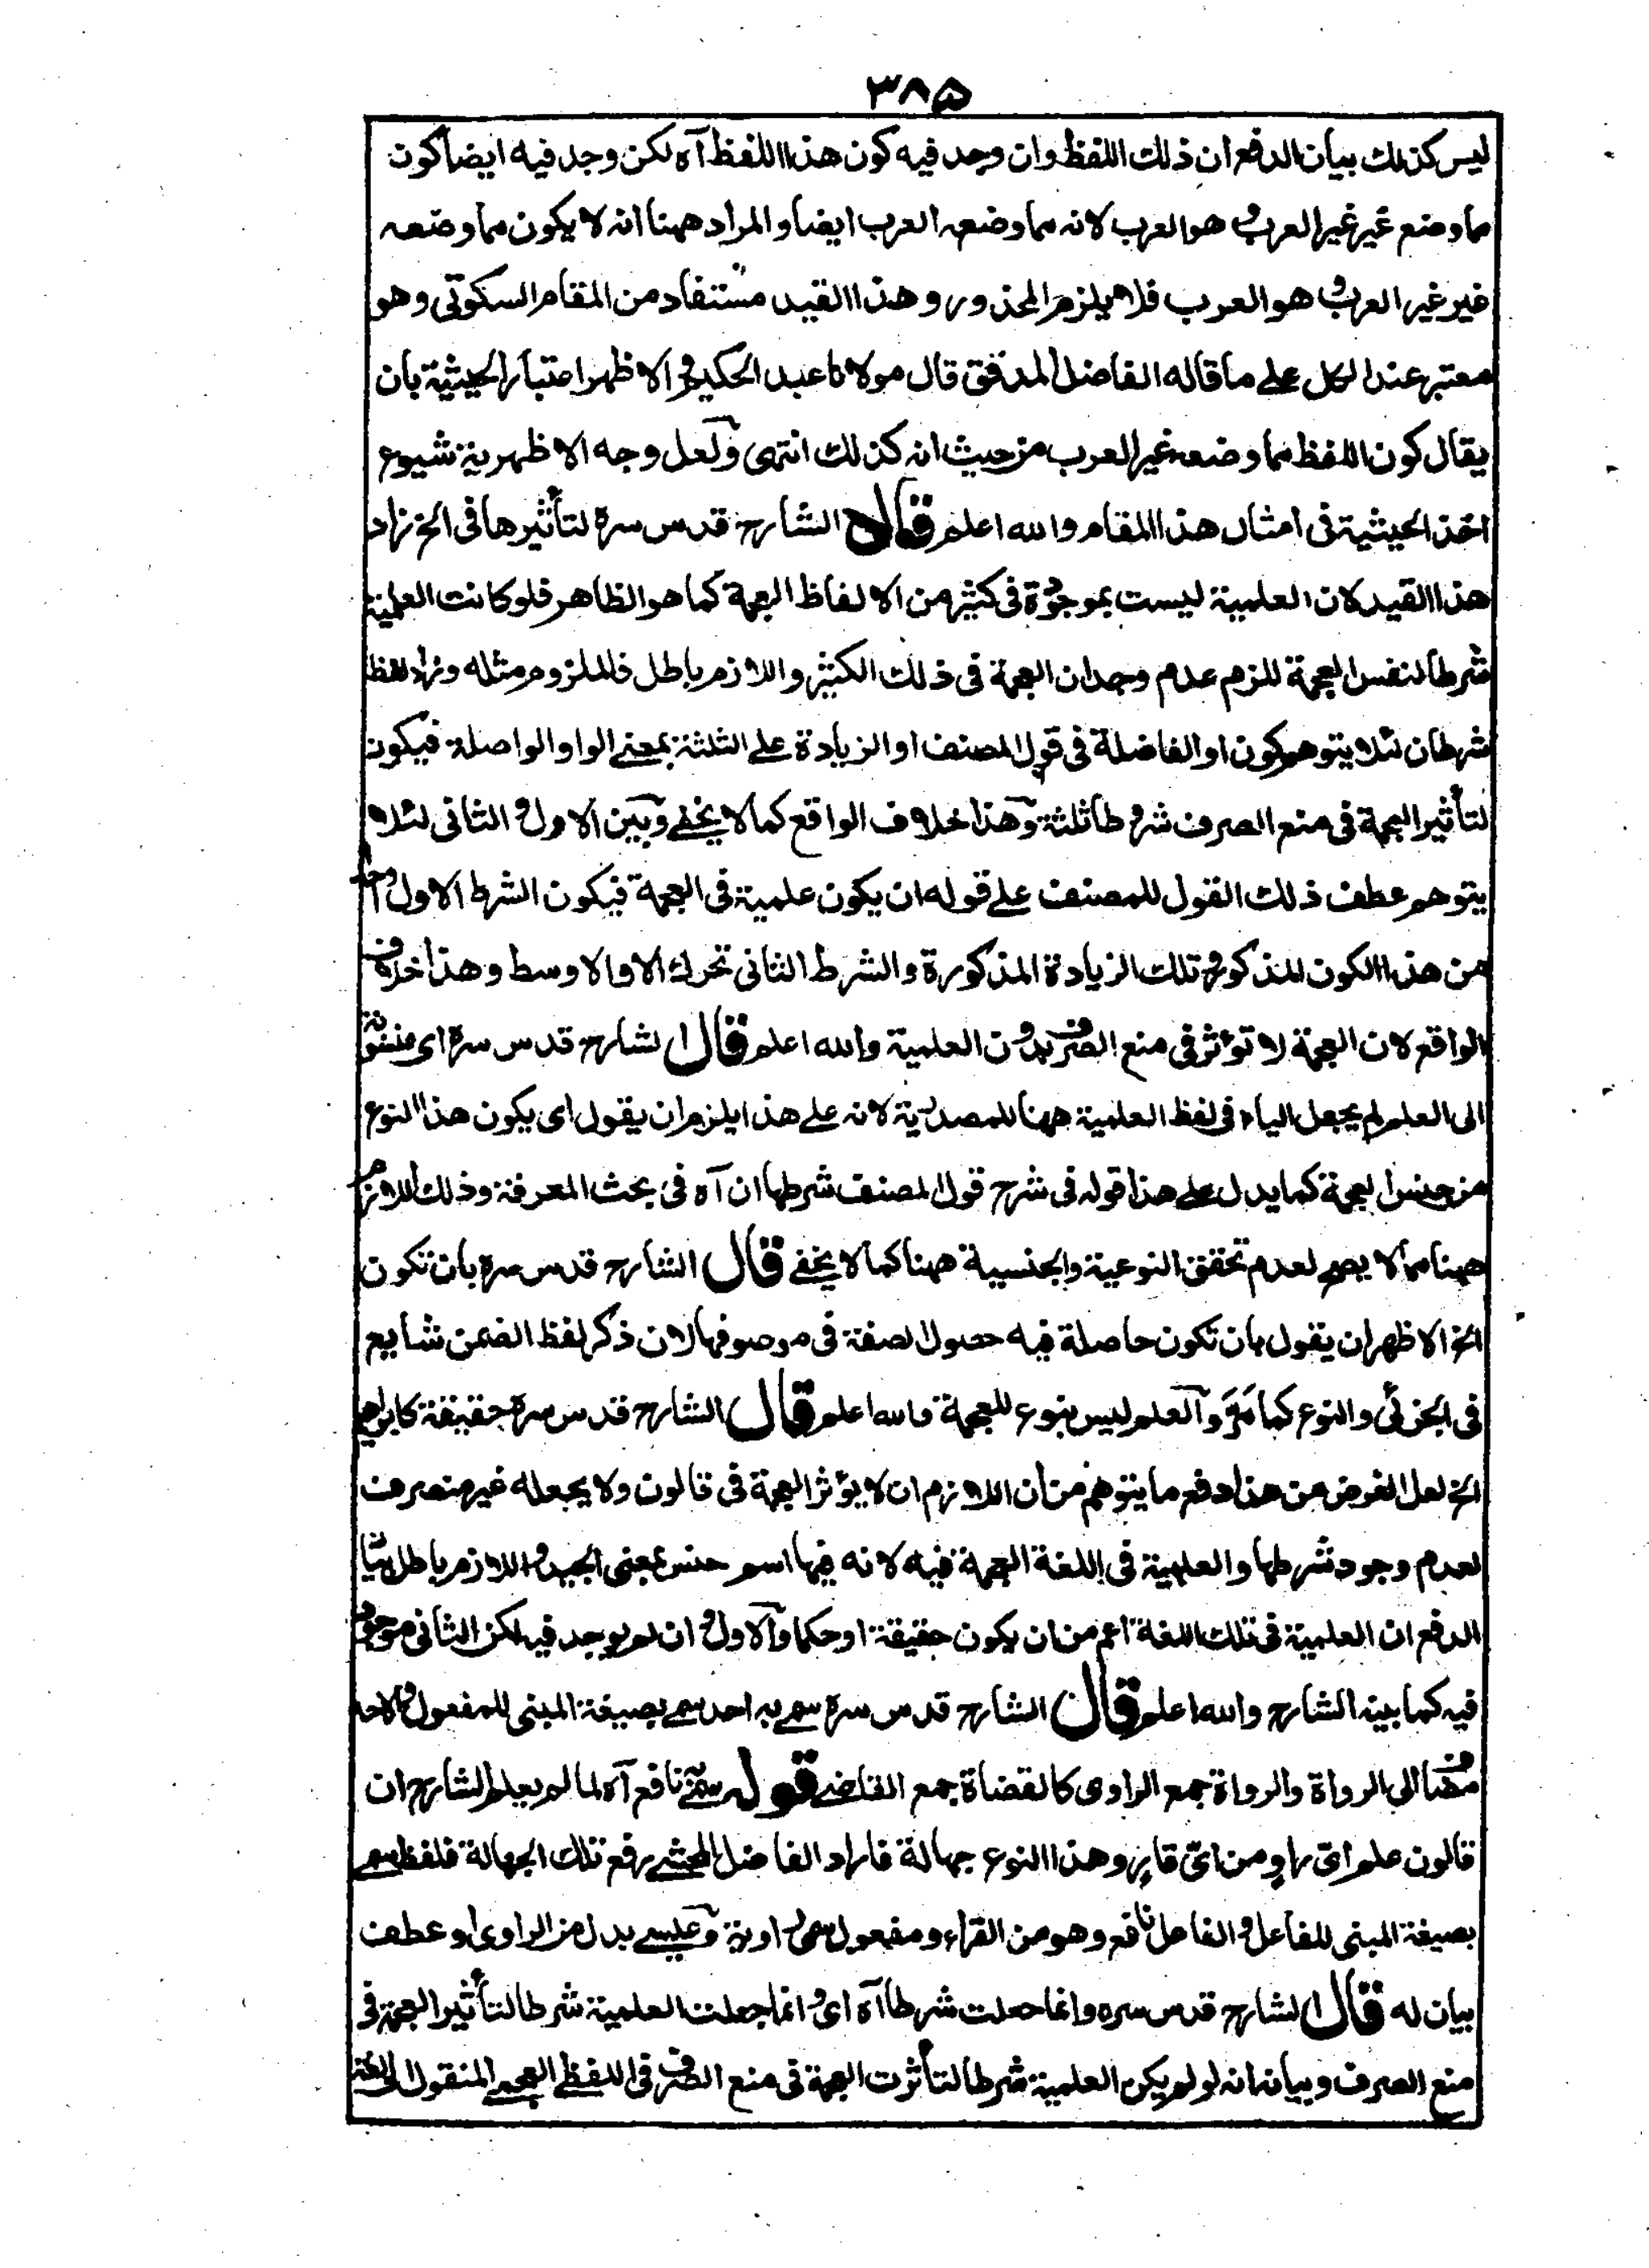 ٣٨۵
ليس كذلك بيان الدفع ان ذلك اللفظ وان وجد فيه كون هذا اللفظ آه لكن وجد فيه ايضا كون
مما وضع غير غير العرب و هو العرب لانه مما وضعه العرب ايضا و المراد ههنا انه لا يكون مما وضعه
غير غير العرب و هو العرب فلا يلزم المحذور و هذا القيد مستفاد من المقام السكوتى و هو
معتبر عند الكل على ما قاله الفاضل المدقق قال مولانا عبد الحكيم و الاظهر اعتبار الحيثية بان
يقال كون اللفظ مما وضعه غير العرب من حيث انه كذلك انتهى و لعل وجه الاظهرية شيوع
اخذ الحيثية فى امثال هذا المقام والله اعلم قال الشارح قدس سره لتأثيرها فى الخ زاد
هذا القيد لان العلمية ليست بموجودة فى كثير من الالفاظ العجمة كما هو الظاهر فلو كانت العلمية
شرطا لنفس العجمة للزم عدم وجدان العجمة فى ذلك الكثير و اللازم باطل فالملزوم مثله و زاد لفظ
شرطان لئلا يتوهم كون او الفاضلة فى قول المصنف او الزيادة على الثلثة بمعنى الواو الواصلة فيكون
لتأثير العجمة فى منع الصرف شروطا ثلثة و هذا خلاف الواقع كما لا يخفى و بين الاول و الثانى لئلا
يتوهم عطف ذلك القول للمصنف على قوله ان يكون علمية فى العجمة فيكون الشرط الاول احد
من هذا الكون المذكور و تلك الزيادة المذكورة و الشرط الثانى تحرك الاوسط و هذا خلاف
الواقع لان العجمة لا تؤثر فى منع الصرف بدون العلمية والله اعلم قال الشارح قدس سره اى منسوبة
الى العلم لم يجعل الياء فى لفظ العلمية ههنا للمصدرية لانه على هذا يلزم ان يقول اى يكون هذا النوع
من جنس العجمة كما يدل على هذا قوله فى شرح قول المصنف شرطها ان آه فى بحث المعرفة و ذلك اللازم
ههنا مما لا يصح لعدم تحقق النوعية و الجنسية ههنا كما لا يخفى قال الشارح قدس سره بان تكون
الخ الاظهر ان يقول بان تكون حاصلة فيه حصول الصفة فى موصوفها لان ذكر لفظ الضمن شايع
فى الجزئى و النوع كما مَرَّ و العلم ليس بنوع للعجمة والله اعلم قال الشارح قدس سره حقيقة كابراهيم
الخ لعل الغرض من هذا دفع ما يتوهم من ان اللازم ان لا يؤثر العجمة فى قالون و لا يجعله غير منصرف
لعدم وجود شرطها و العلمية فى اللغة العجمة فيه لانه فيها اسم جنس بمعنى الجيد و اللازم باطل بيان
الدفع ان العلمية فى تلك اللغة اعم من ان يكون حقيقة او حكما و الاول و ان لم يوجد فيه لكن الثانى موجود
فيه كما بينه الشارح والله اعلم قال الشارح قدس سره سمى به احد سمى بصيغة المبنى للمفعول و الاحد
مضاف الى الرواة و الرواة جمع الراوى كالقضاة جمع القاضى قوله سمى نافع آه لما لم يعلم الشارح ان
قالون علم اىّ راوٍ من اىّ قارٍ و هذا النوع جهالة فاراد الفاضل المحشى رفع تلك الجهالة فلفظ سمى
بصيغة المبنى للفاعل و الفاعل نافع و هو من القراء و مفعول سمى راويه و عيسى بدل من الراوى او عطف
بيان له قال الشارح قدس سره و انما جعلت شرطا آه اى و انما جعلت العلمية شرطا لتأثير العجمة فى
منع الصرف و بيانه انه لو لم يكن العلمية شرطا لتأثرت العجمة فى منع الصرف فى اللفظ العجمى المنقول الى